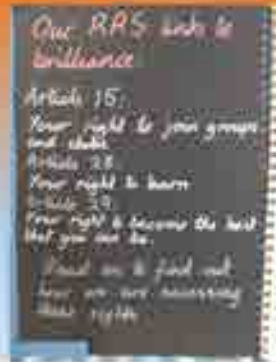 Our RRS links to
brilliance
Article 15:
Your right to join groups
and clubs
Article 28:
Your right to learn
Article 29:
Your right to become the best
that you can be.
Read on to find out
how we are accessing
these rights